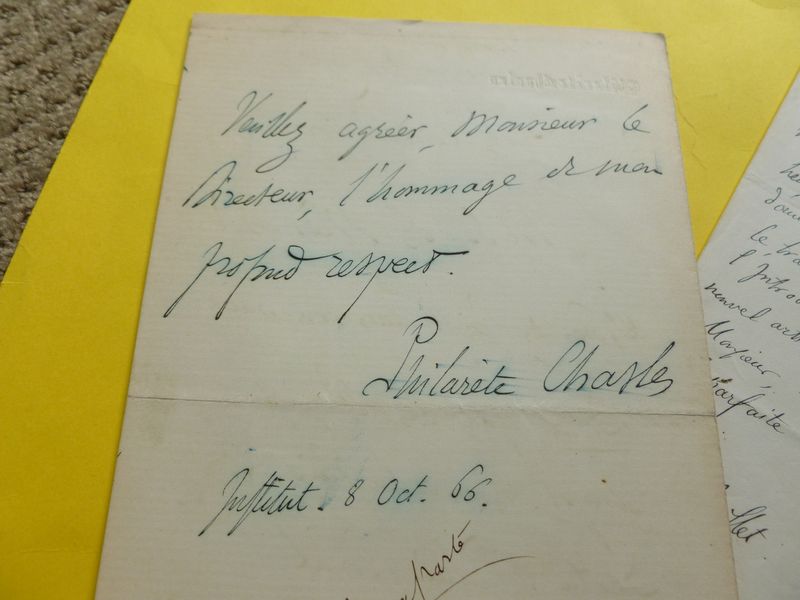 Veuillez agréer, Monsieur le
Directeur, l'hommage de mon
profond respect.
Philarète Chasles
Institut. 8 Oct. 66.
le
nouvel
Monsieur,
parfaite